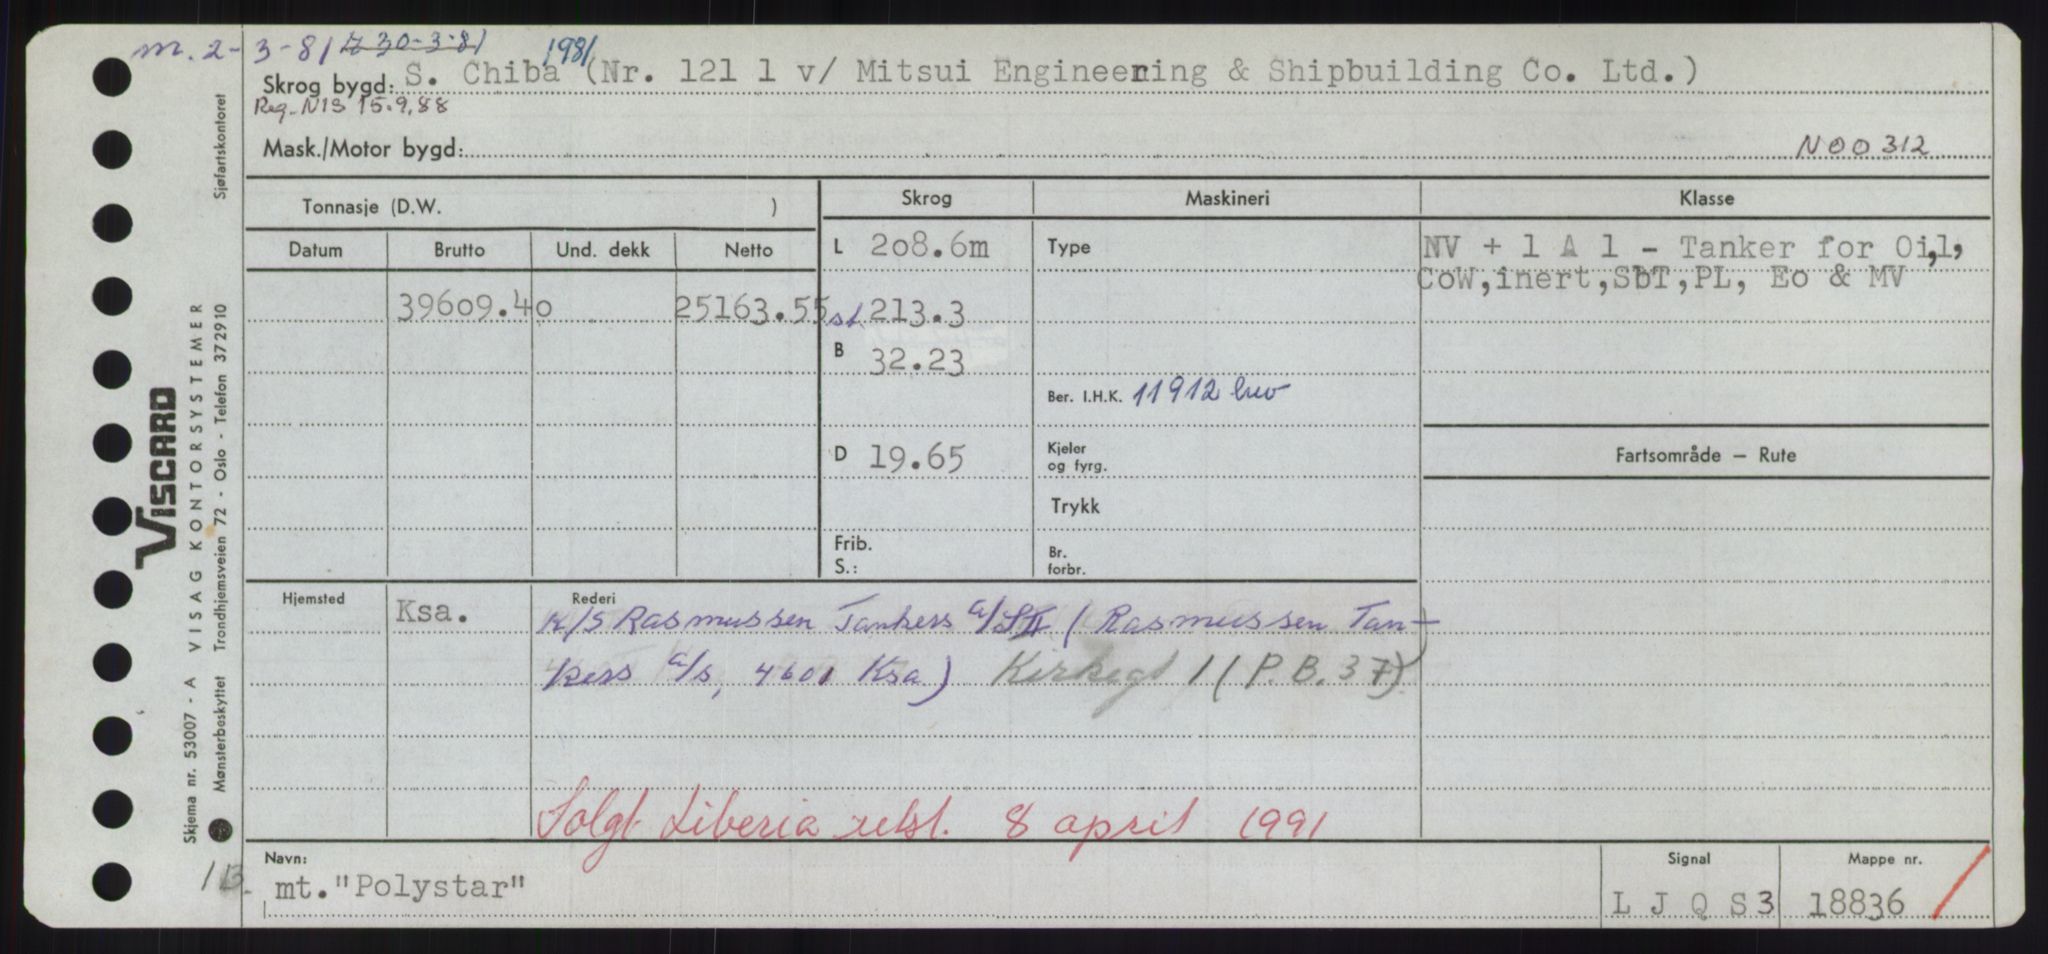 m. 2-3-81 Z 30-3-81
1981
Skrog bygd: S. Chiba (Nr. 121 1 v/ Mitsui Engineering & Shipbuilding Co. Ltd.)
Reg. NIS 15.9.88
Mask./Motor bygd: N00312
Tonnasje (D.W. ) Skrog Maskineri Klasse
Datum Brutto Und. dekk Netto L 208.6m Type NV + 1 A 1 - Tanker for Oil,
CoW,inert,SbT,PL, Eo & MV
39609.40 25163.55 st. 213.3
B 32.23
Ber. I.H.K. 11912 bhv
D 19.65 Kjeler og fyrg. Fartsområde — Rute
Trykk
Frib. Br. forbr.
S.:
Hjemsted Ksa. Rederi
K/S Rasmussen Tankers A/S II (Rasmussen Tan-
kers A/S, 4601 Ksa) Kirkegt 1 (P.B. 37)
Solgt Liberia refst. 8 april 1991
Navn: Signal Mappe nr.
1 B. mt."Polystar" L J Q S 3 18836
VISCARD
Skjema nr. 53007 - A VISAG KONTORSYSTEMER
Mønsterbeskyttet Trondhjemsveien 72 - Oslo - Telefon 372910 Sjøfartskontoret